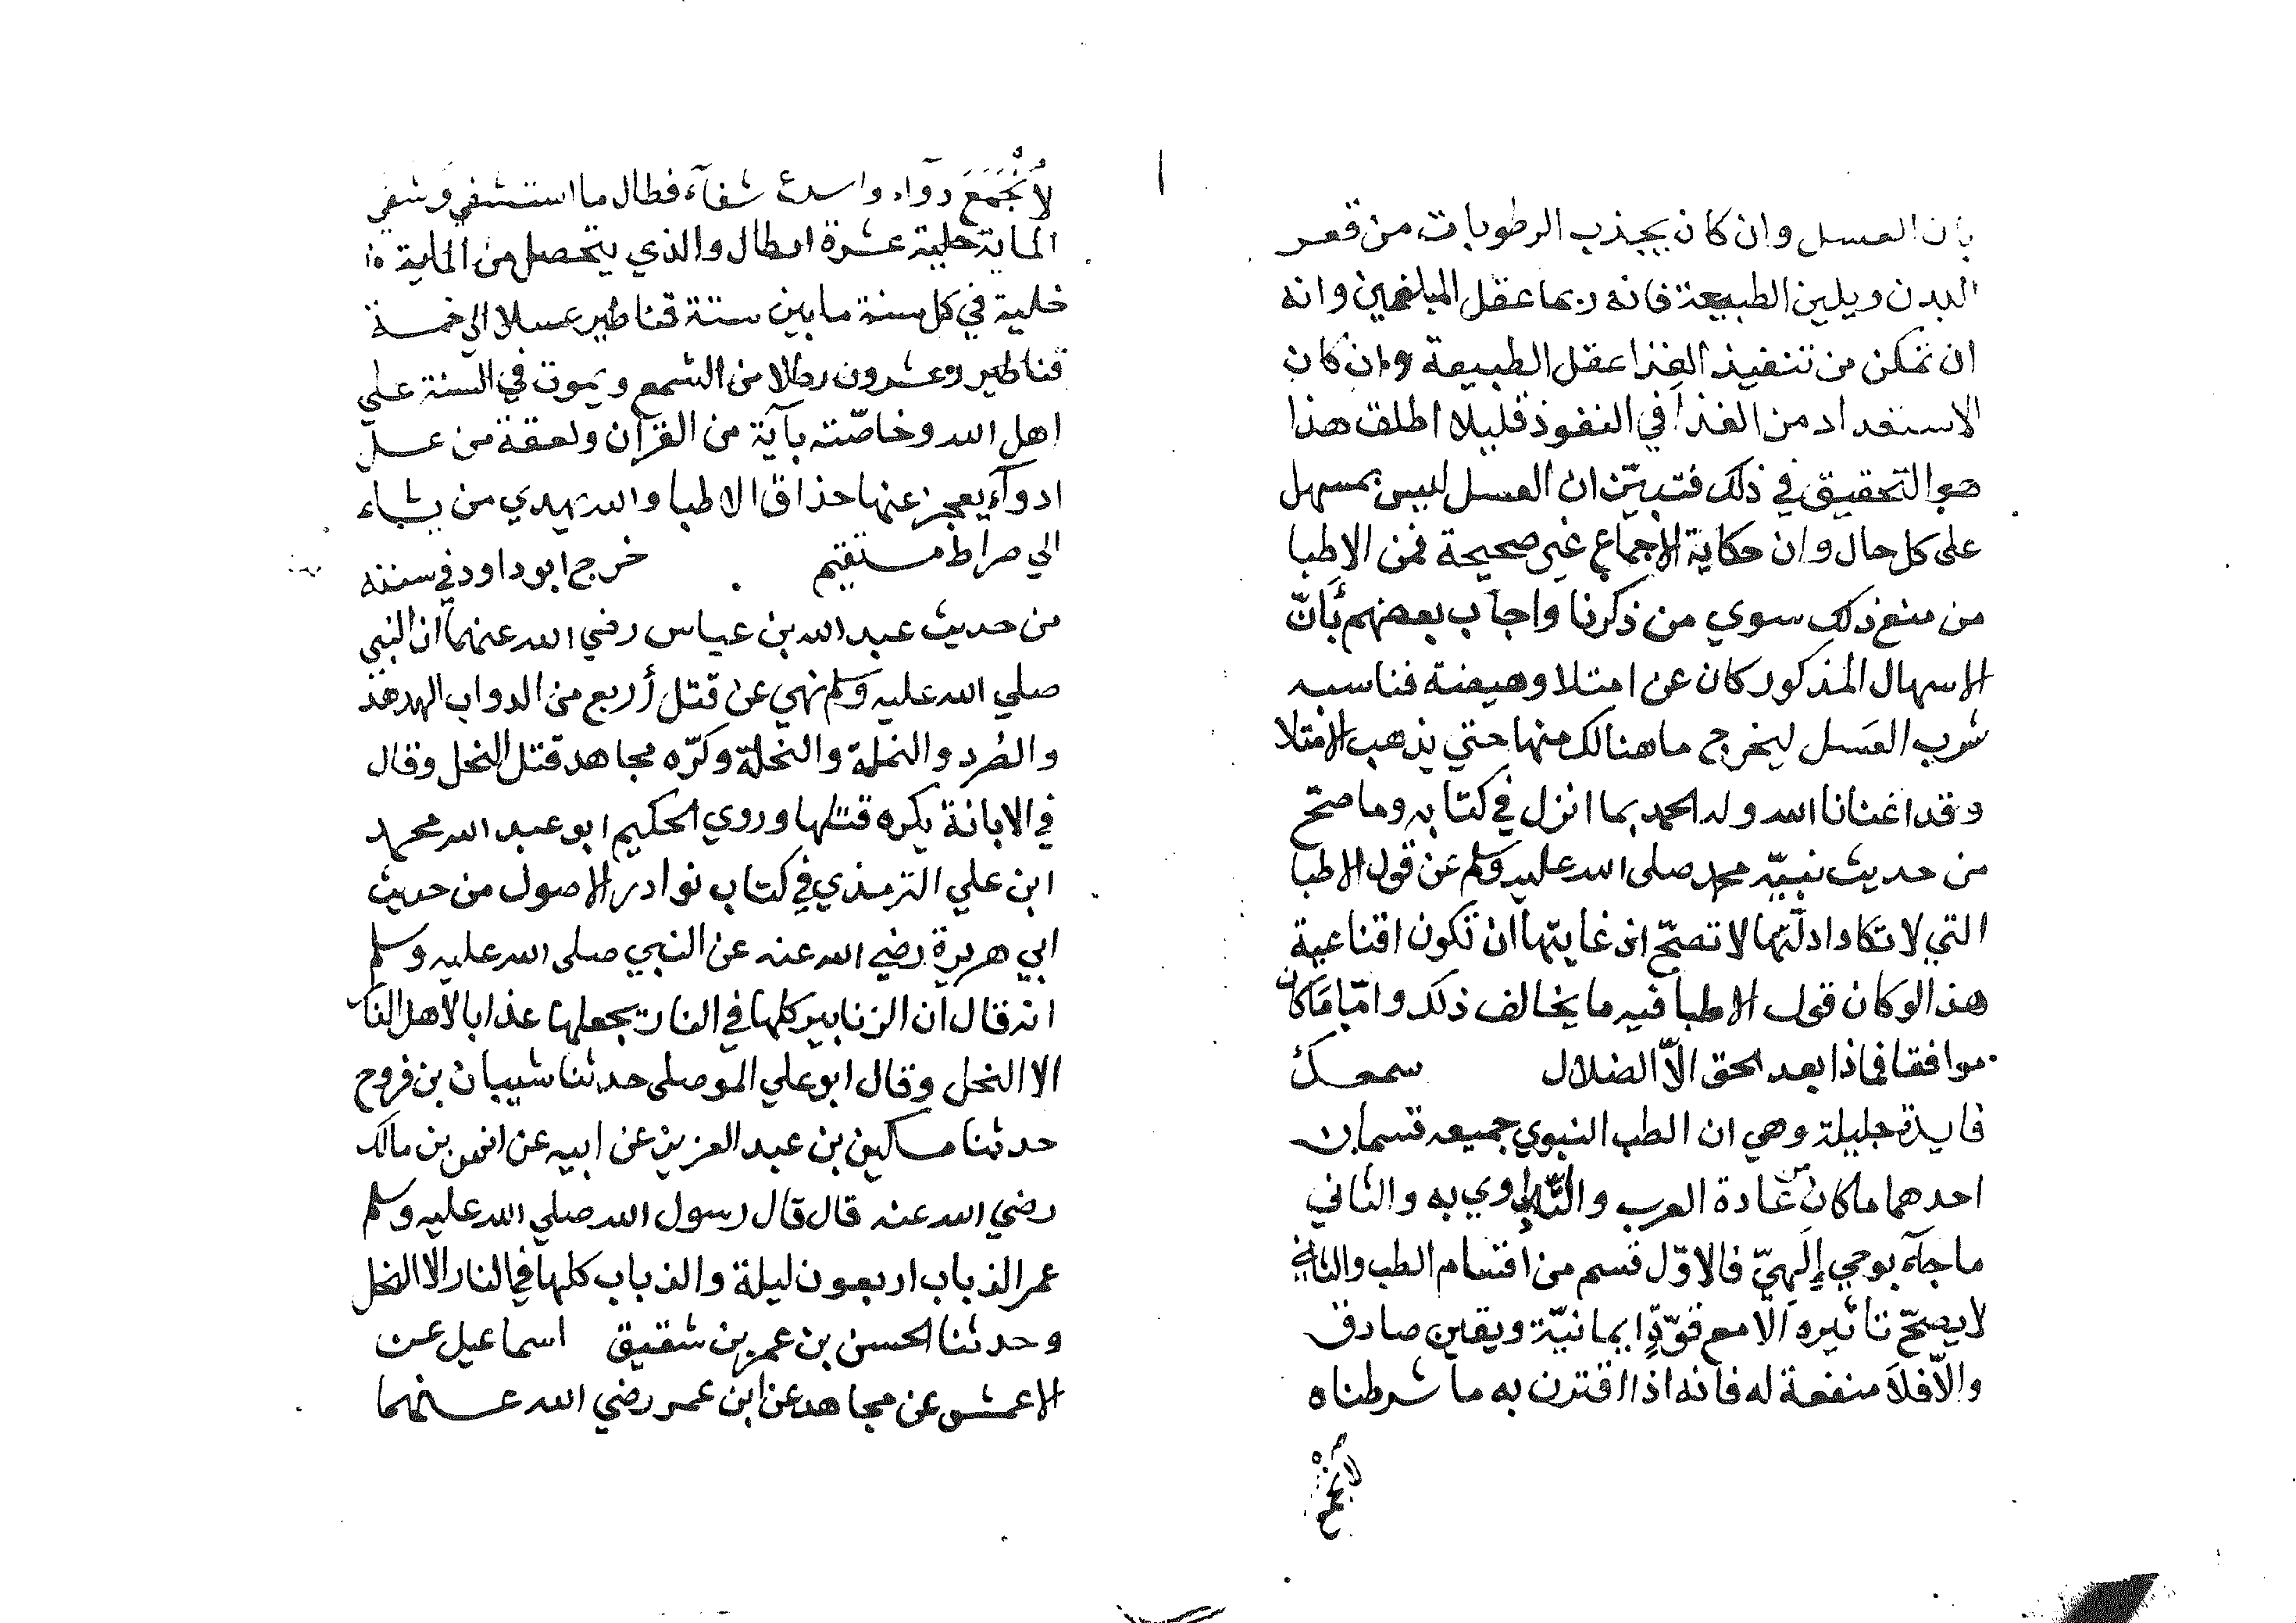 بان العسل وان كان يجذب الرطوبات من قعر
البدن ويلين الطبيعة فانه ربما عقل المبلغمين وانه
ان تمكن من تنفيذ الغذا عقل الطبيعة وان كان
الاستعداد من الغذا في النفوذ قليلا اطلق هذا
هو التحقيق في ذلك فتبيّن ان العسل ليس بمسهل
على كل حال وان حكاية الاجماع غير صحيحة فمن الاطبا
من منع ذلك سوي من ذكرنا واجاب بعضهم بأنّ
الاسهال المذكور كان عن امتلا وهيضة فناسبه
شرب العسل ليخرج ما هنالك منها حتي يذهب الامتلا
وقد اغنانا الله وله الحمد بما انزل في كتابه وما صحّ
من حديث نبيّه محمد صلى الله عليه وسلم عن قول الاطبا
التي لا تكاد ادلّتها لا تصحّ اذ غايتها أن تكون اقناعية
هذا لو كان قول الاطبا فيه ما يخالف ذلك وامّا ما كان
موافقا فماذا بعد الحق الاّ الضلال سمعك
فايدة جليلة وهي ان الطب النبوي جميعه قسمان
احدهما ما كان من عادة العرب والتّداوي به والثاني
ما جآء بوحي إلهيّ فالاوّل قسم من أقسام الطب والثاني
لا يصحّ تاثيره الّا مع قوّةٍ ايمانيّة ويقين صادق
والّا فلا منفعة له فانه اذا اقترن به ما شرطناه
لانجع
لأنجع دوآء واسرع شفآء فطال ما استشفي وشفي
الماية خلية عشرة ارطال والذي يتحصل من الماية
خلية في كل سنة ما بين ستة قناطير عسلا الي خمسة
قناطير وعشرون رطلا من الشمع ويموت في السنة علي
اهل الله وخاصّته بآية من القرآن ولعقة من عسل
ادوآء يعجز عنها حذاق الاطبا والله يهدي من يشاء
الي صراط مستقيم خرج ابو داود في سننه
من حديث عبد الله بن عباس رضي الله عنهما أن النبي
صلي الله عليه وسلم نهي عن قتل أربع من الدواب الهدهد
والصُرد والنملة والنحلة وكرّه مجاهد قتل النحل وقال
في الابانة يكره قتلها وروي الحكيم ابو عبد الله محمد
ابن علي الترمذي في كتاب نوادر الاصول من حديث
ابي هريرة رضي الله عنه عن النبي صلى الله عليه وسلم
انه قال أن الزنابير كلها في النار يجعلها عذابا لأهل النار
الا النحل وقال ابو علي الموصلى حدثنا شيبان بن فروح
حدثنا مسكين بن عبد العزيز عن ابيه عن انس بن مالك
رضي الله عنه قال قال رسول الله صلي الله عليه وسلم
عمر الذباب اربعون ليلة والذباب كلها في النار الّا النحل
وحدثنا الحسن بن عمر بن شقيق اسماعيل عن
الاعمش عن مجاهد عن ابن عمر رضي الله عنهما